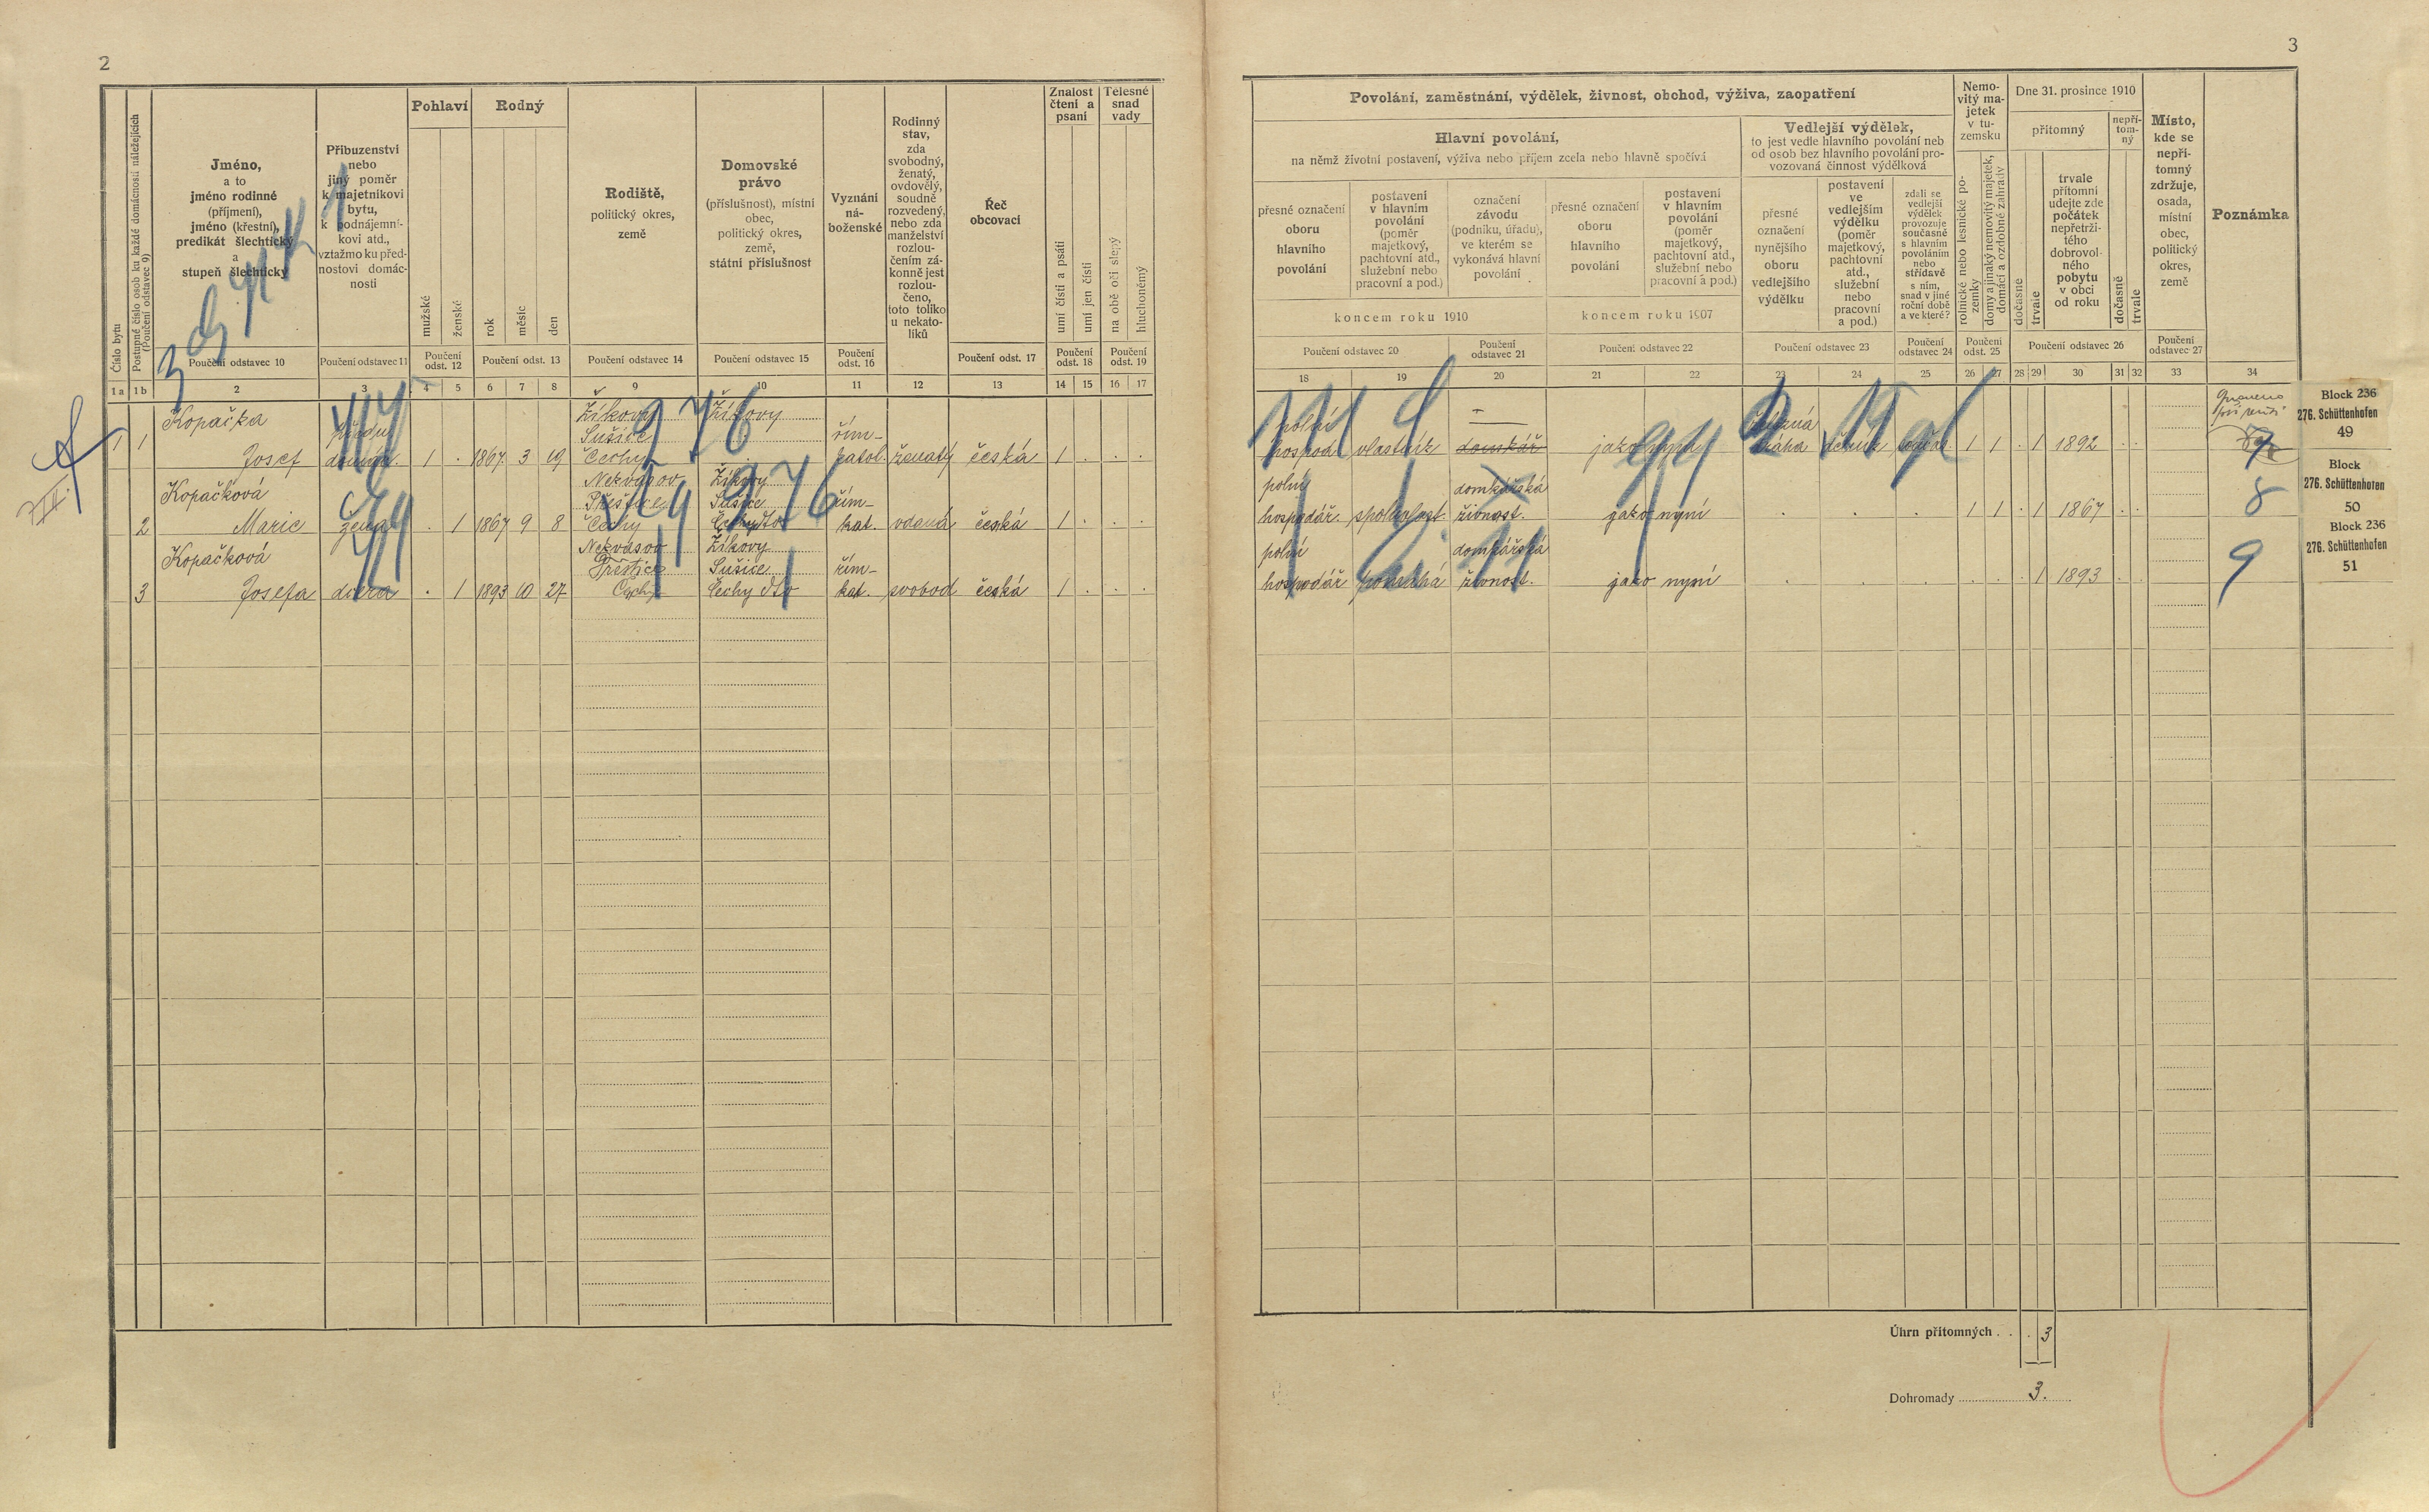 2
Číslo bytu
Postupné číslo osob ku každé domácnosti náležejících
(Poučení odstavec 9)
Jméno,
a to
jméno rodinné
(příjmení),
jméno (křestní),
predikát šlechtický
a
stupeň šlechtický
Poučení odstavec 10
Příbuzenství
nebo
jiný poměr
k majetníkovi
bytu,
k podnájemní-
kovi atd.,
vztažmo ku před-
nostovi domác-
nosti
Poučení odstavec 11
Pohlaví
mužské
ženské
Poučení
odst. 12
Rodný
rok
měsíc
den
Poučení odst. 13
Rodiště,
politický okres,
země
Poučení odstavec 14
Domovské
právo
(příslušnost), místní
obec,
politický okres,
země,
státní příslušnost
Poučení odstavec 15
Vyznání
ná-
boženské
Poučení
odst. 16
Rodinný
stav,
zda
svobodný,
ženatý,
ovdovělý,
soudně
rozvedený,
nebo zda
manželství
rozlou-
čením zá-
konně jest
rozlou-
čeno,
toto toliko
u nekato-
líků
Řeč
obcovací
Poučení odst. 17
Znalost
čtení a
psaní
umí čísti a psáti
umí jen čísti
Poučení
odst. 18
Tělesné
snad
vady
na obě oči slepý
hluchoněmý
Poučení
odst. 19
1a 1b 2 3 4 5 6 7 8 9 10 11 12 13 14 15 16 17
Kopačka
Žíkovy Žíkovy
Sušice řím-
1 1 Josef 1 . 1867 3 19 Čechy katol. ženatý česká 1 . . .
Kopačková
Nekvasov Žíkovy
Přeštice Sušice řím-
2 Marie žena . 1 1867 9 8 Čechy Čechy dto kat. vdaná česká 1 . . .
Kopačková
Nekvasov Žíkovy
Přeštice Sušice řím-
3 Josefa dcera . 1 1893 10 27 Čechy Čechy dto kat. svobod česká 1 . . .
3
Povolání, zaměstnání, výdělek, živnost, obchod, výživa, zaopatření
Hlavní povolání,
na němž životní postavení, výživa nebo příjem zcela nebo hlavně spočívá
přesné označení
oboru
hlavního
povolání
postavení
v hlavním
povolání
(poměr
majetkový,
pachtovní atd.,
služební nebo
pracovní a pod.)
označení
závodu
(podniku, úřadu),
ve kterém se
vykonává hlavní
povolání
koncem roku 1910
přesné označení
oboru
hlavního
povolání
postavení
v hlavním
povolání
(poměr
majetkový,
pachtovní atd.,
služební nebo
pracovní a pod.)
koncem roku 1907
Poučení odstavec 20
Poučení
odstavec 21
Poučení odstavec 22
Vedlejší výdělek,
to jest vedle hlavního povolání neb
od osob bez hlavního povolání pro-
vozovaná činnost výdělková
přesné
označení
nynějšího
oboru
vedlejšího
výdělku
postavení
ve
vedlejším
výdělku
(poměr
majetkový,
pachtovní
atd.,
služební
nebo
pracovní
a pod.)
zdali se
vedlejší
výdělek
provozuje
současně
s hlavním
povoláním
nebo
střídavě
s ním,
snad v jiné
roční době
a ve které?
Poučení odstavec 23
Poučení
odstavec 24
Nemo-
vitý ma-
jetek
v tu-
zemsku
rolnické nebo lesnické po-
zemky
domy a jinaký nemovitý majetek,
domácí a ozdobné zahrady
Poučení
odst. 25
Dne 31. prosince 1910
přítomný
nepří-
tom-
ný
dočasně
trvale
trvale
přítomní
udejte zde
počátek
nepřetrži-
tého
dobrovol-
ného
pobytu
v obci
od roku
dočasně
trvale
Poučení odstavec 26
Místo,
kde se
nepří-
tomný
zdržuje,
osada,
místní
obec,
politický
okres,
země
Poučení
odstavec 27
Poznámka
18 19 20 21 22 23 24 25 26 27 28 29 30 31 32 33 34
polní
hospod vlastník domkář 1 1 . 1 1892 . . 7
polní domkářská
hospodář. spoluvlast. živnost. jako nyní . . . 1 1 . 1 1867 . . 8
polní domkářská
hospodář pomáhá živnost. jako nyní . . . . . . 1 1893 . . 9
Block 236
276. Schüttenhofen
49
Block
276. Schüttenhofen
50
Block 236
276. Schüttenhofen
51
Úhrn přítomných . . . 3
Dohromady 3.